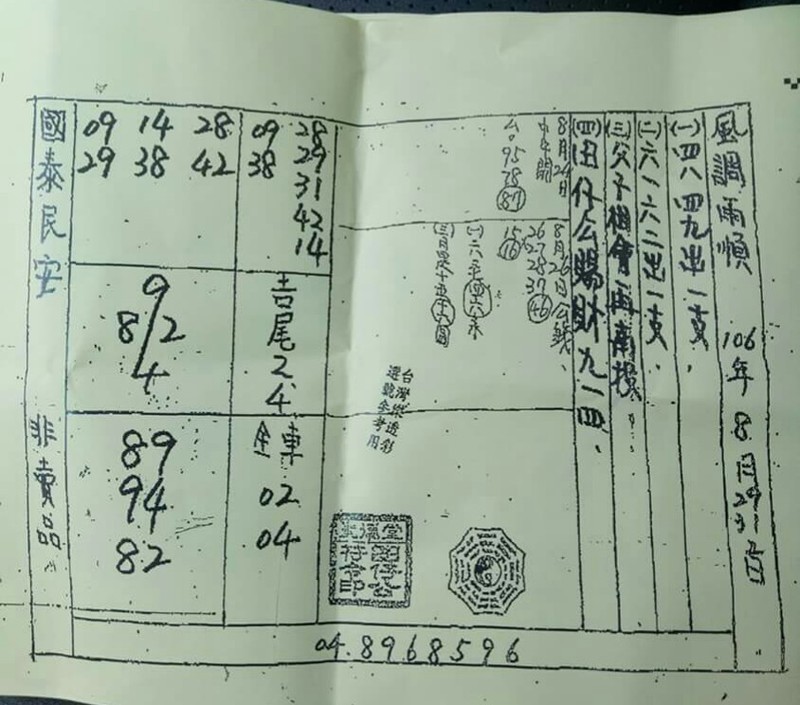 風調雨順 106年 8月29日
(一)四八.四九出一支.
(二)六一六二出一支.
(三)父子相會一再南投.
(四)田仔公賜財九一四.
8月24日
中午開
公.95
78
87
8月26日公號.
26
27
28
37
46
15
16
台灣樂透彩
選號參考用
28
29
31
42
14
09
38
吉尾2.4
全車
02
04
09 14 28
29 38 42
9
8/2
4
89
94
82
國泰民安 非賣品
04.8968596